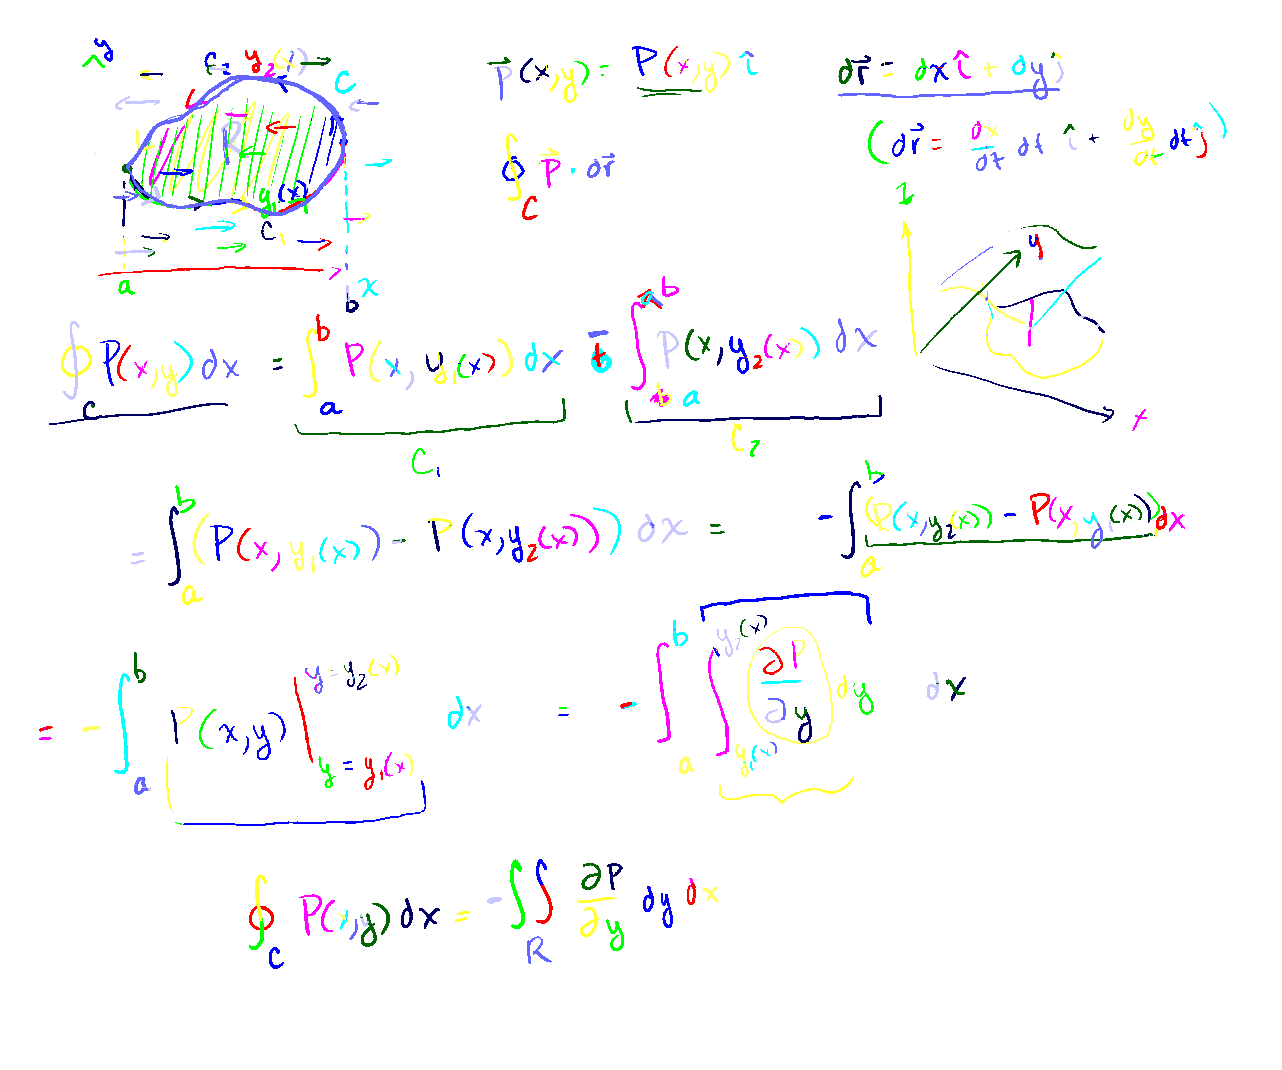 y C₂ y₂(x) C
R
y₁(x)
C₁
a b x
P⃗(x,y) = P(x,y) î
∮_C P⃗ · dr⃗
dr⃗ = dx î + dy ĵ
(dr⃗ = dx/dt dt î + dy/dt dt ĵ)
z y x
∮_C P(x,y) dx = ∫_a^b P(x, y₁(x)) dx − ∫_a^b P(x, y₂(x)) dx
C₁ C₂
= ∫_a^b (P(x, y₁(x)) − P(x, y₂(x))) dx = −∫_a^b (P(x, y₂(x)) − P(x, y₁(x))) dx
= −∫_a^b P(x,y) |_{y = y₁(x)}^{y = y₂(x)} dx = −∫_a^b ∫_{y₁(x)}^{y₂(x)} ∂P/∂y dy dx
∮_C P(x,y) dx = −∫∫_R ∂P/∂y dy dx